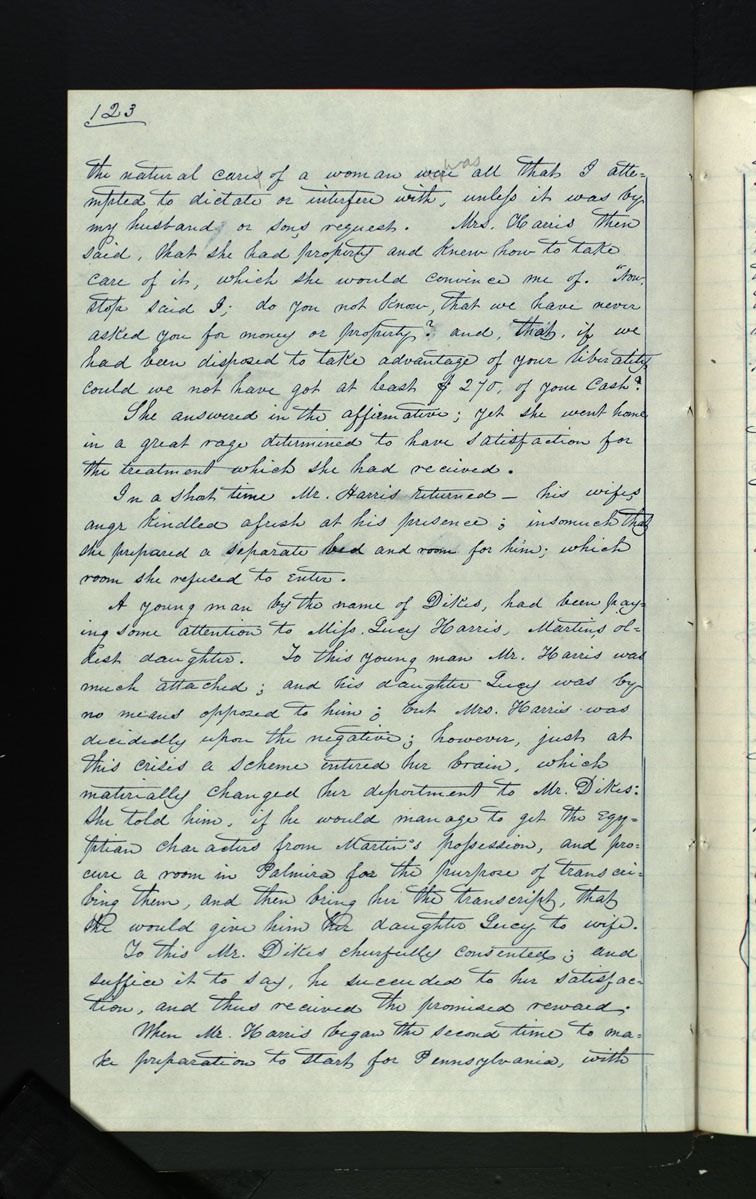 123
was
the natural cares of a woman were all that I atte=
mpted to dictate or interfere with, unless it was by
my husbands or sons request. Mrs. Harris then
said, that she had property and knew how to take
care of it, which she would convince me of. "Now,
stop said I, do you not know, that we have never
asked you for money or property? and, that, if we
had been disposed to take advantage of your liberality
could we not have got at least $270, of your Cash?
She answered in the affirmative; yet she went home
in a great rage determined to have satisfaction for
the treatment which she had received.
In a short time Mr. Harris returned — his wifes
angr kindled afresh at his presence; insomuch that
she prepared a separate bed and room for him; which
room she refused to enter.
A young man by the name of Dikes, had been pay=
ing some attention to Miss. Lucy Harris, Martins ol=
dest daughter. To this young man Mr. Harris was
much attached; and his daughter Lucy was by
no means opposed to him; but Mrs. Harris was
decidedly upon the negative; however, just at
this crisis a scheme entered her brain, which
materially changed her deportment to Mr. Dikes:
She told him, if he would manage to get the Egy=
ptian characters from Martin's possession, and pro=
cure a room in Palmira for the purpose of transcri=
bing them, and then bring her the transcript, that
she would give him her daughter Lucy to wife.
To this Mr. Dikes cheerfully consented; and
suffice it to say, he succeeded to her satisfac=
tion, and thus received the promised reward.
When Mr. Harris began the second time to ma=
ke preparation to start for Pennsylvania, with